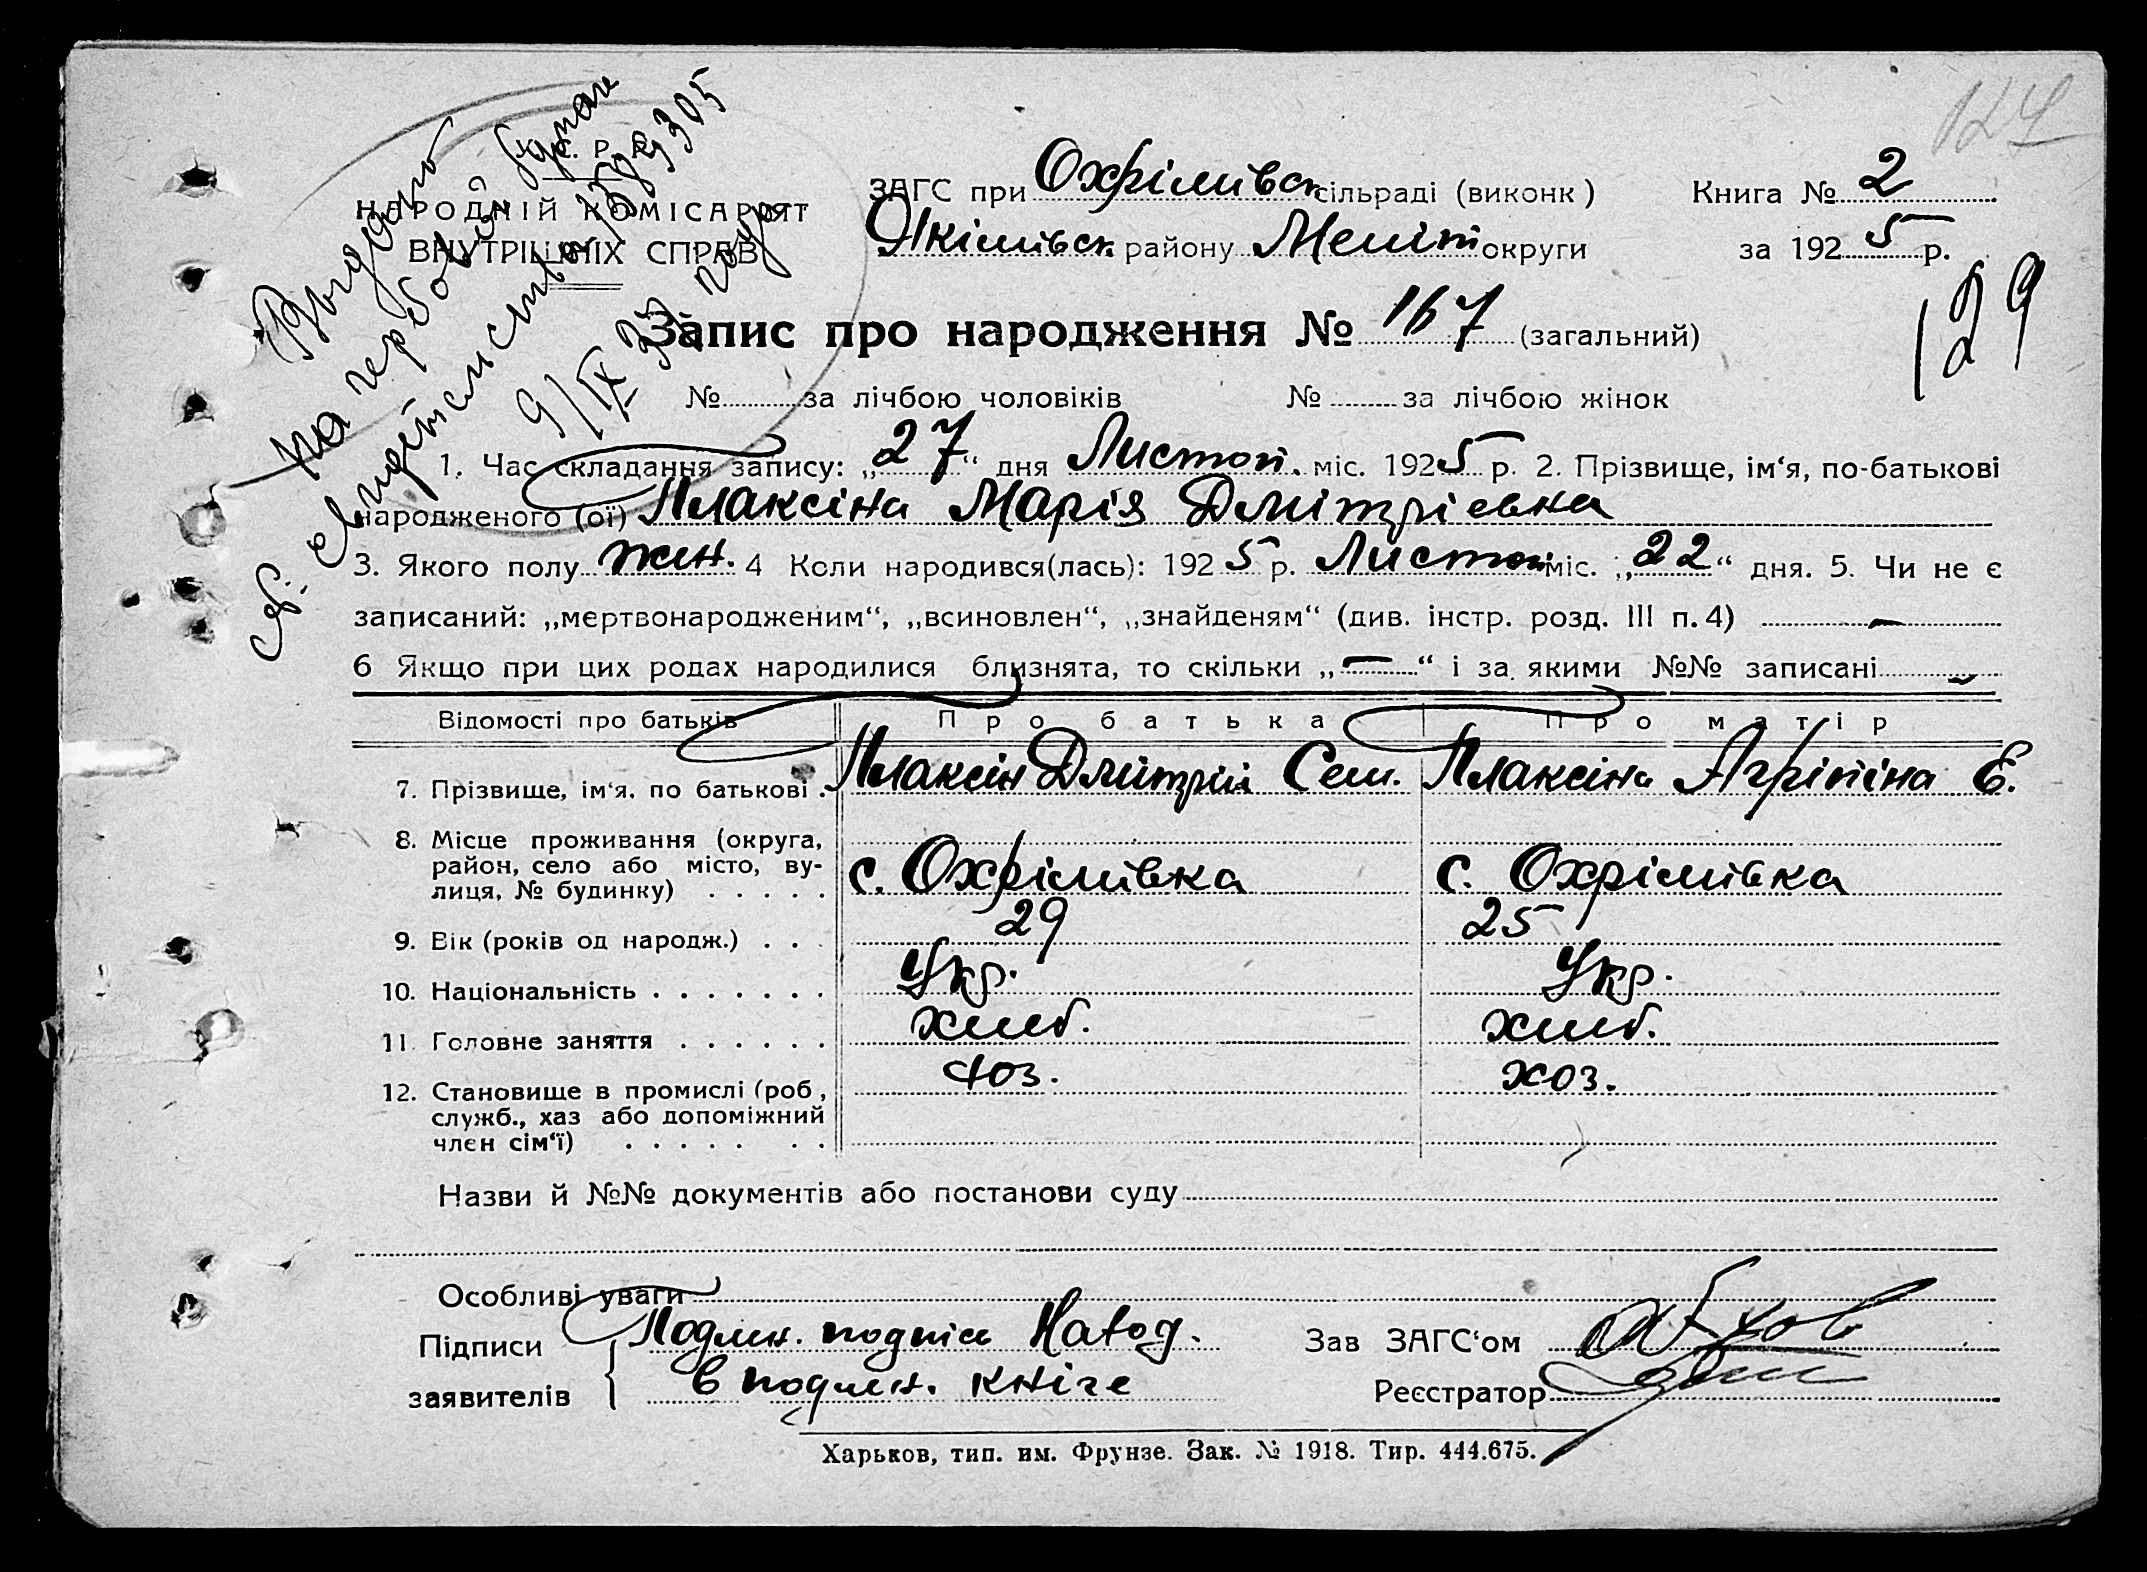 127
У. С. Р. Р.
НАРОДНІЙ КОМІСАРІЯТ
ВНУТРІШНІХ СПРАВ
Выдано
на гербовой бумаге
св.
9/IX 37 года
ЗАГС при Охрімівск сільраді (виконк) Книга № 2
Якімівск району Меліт округи за 1925 р.
129
Запис про народження № 167 (загальний)
№ за лічбою чоловіків № за лічбою жінок
1. Час складання запису: „27“ дня Листоп. міс. 1925 р. 2. Прізвище, ім‘я, по-батькові
народженого (ої) Плаксіна Марія Дмітріевна
3. Якого полу жен. 4 Коли народився(лась): 1925 р. Листоп міс. „22“ дня. 5. Чи не є
записаний: „мертвонародженим“, „всиновлен“, „знайденям“ (див. інстр. розд. III п. 4) —
6 Якщо при цих родах народилися близнята, то скільки „—“ і за якими №№ записані
Відомості про батьків Про батька Про матір
7. Прізвище, ім‘я, по батькові . Плаксін Дмітрій Сем. Плаксіна Агріпіна Е.
8. Місце проживання (округа,
район, село або місто, ву-
лиця, № будинку) . . . . . с. Охрімівка с. Охрімівка
9. Вік (років од народж.) . . . 29 25
10. Національність . . . . . . . Укр. Укр.
11. Головне заняття . . . . . . хліб. хліб.
12. Становище в промислі (роб, хоз. хоз.
служб., хаз або допоміжний
член сім‘ї) . . . . . . .
Назви й №№ документів або постанови суду
Особливі уваги
Підписи Подлин. подпіс Наход. Зав ЗАГС‘ом
заявителів в подлин. кніге Реєстратор
Харьков, тип. им. Фрунзе. Зак. № 1918. Тир. 444.675.